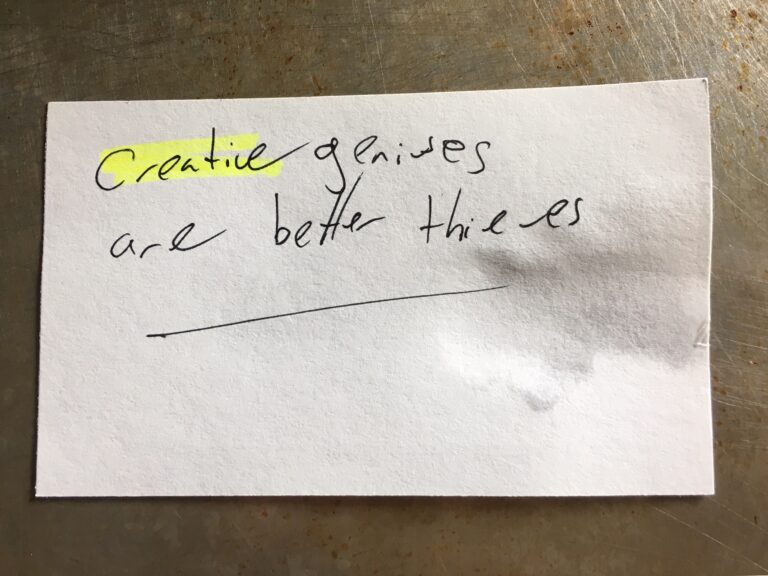 Creative geniuses
are better thieves